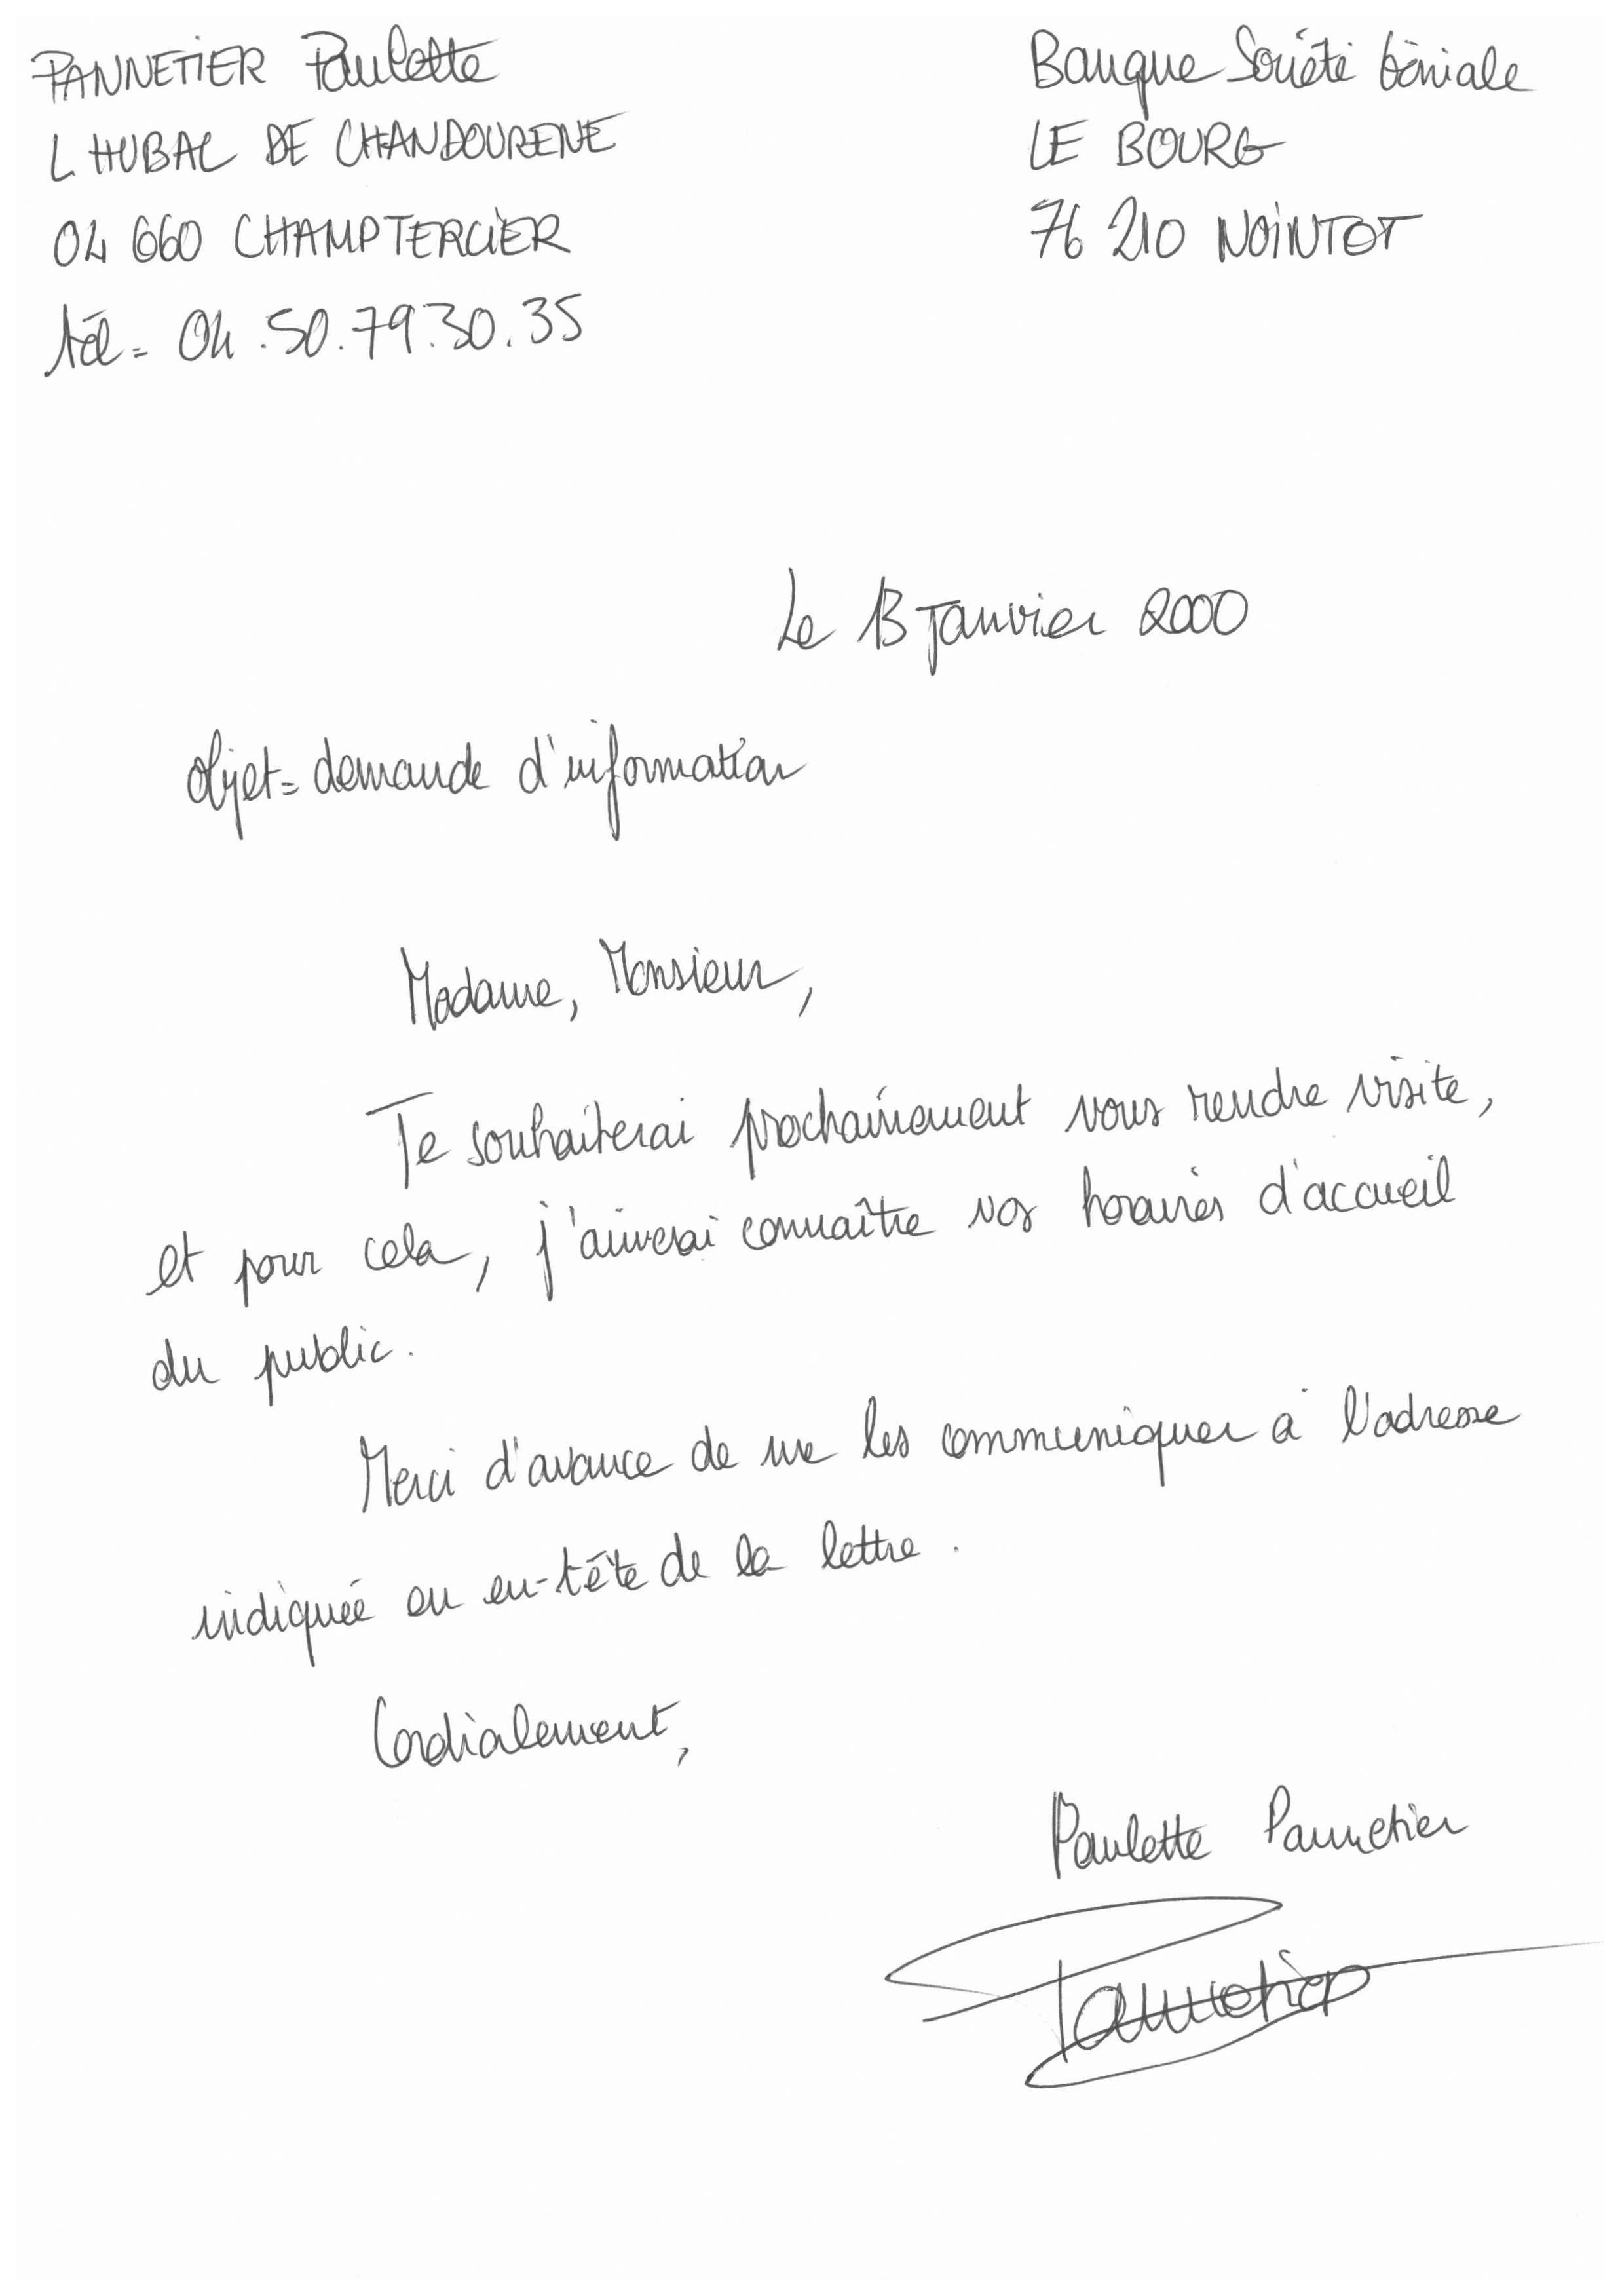 PANNETIER Paulette
L HUBAC DE CHANDOURENE
04 660 CHAMPTERCIER
tél = 04.50.79.30.35
Banque Société Géniale
LE BOURG
76 210 NOINTOT
Le 13 Janvier 2000
objet = demande d'information
Madame, Monsieur,
Je souhaiterai prochainement vous rendre visite,
et pour cela, j'aimerai connaître vos horaires d'accueil
du public.
Merci d'avance de me les communiquer à l'adresse
indiquée en en-tête de la lettre.
Cordialement,
Paulette Pannetier
Pannetier